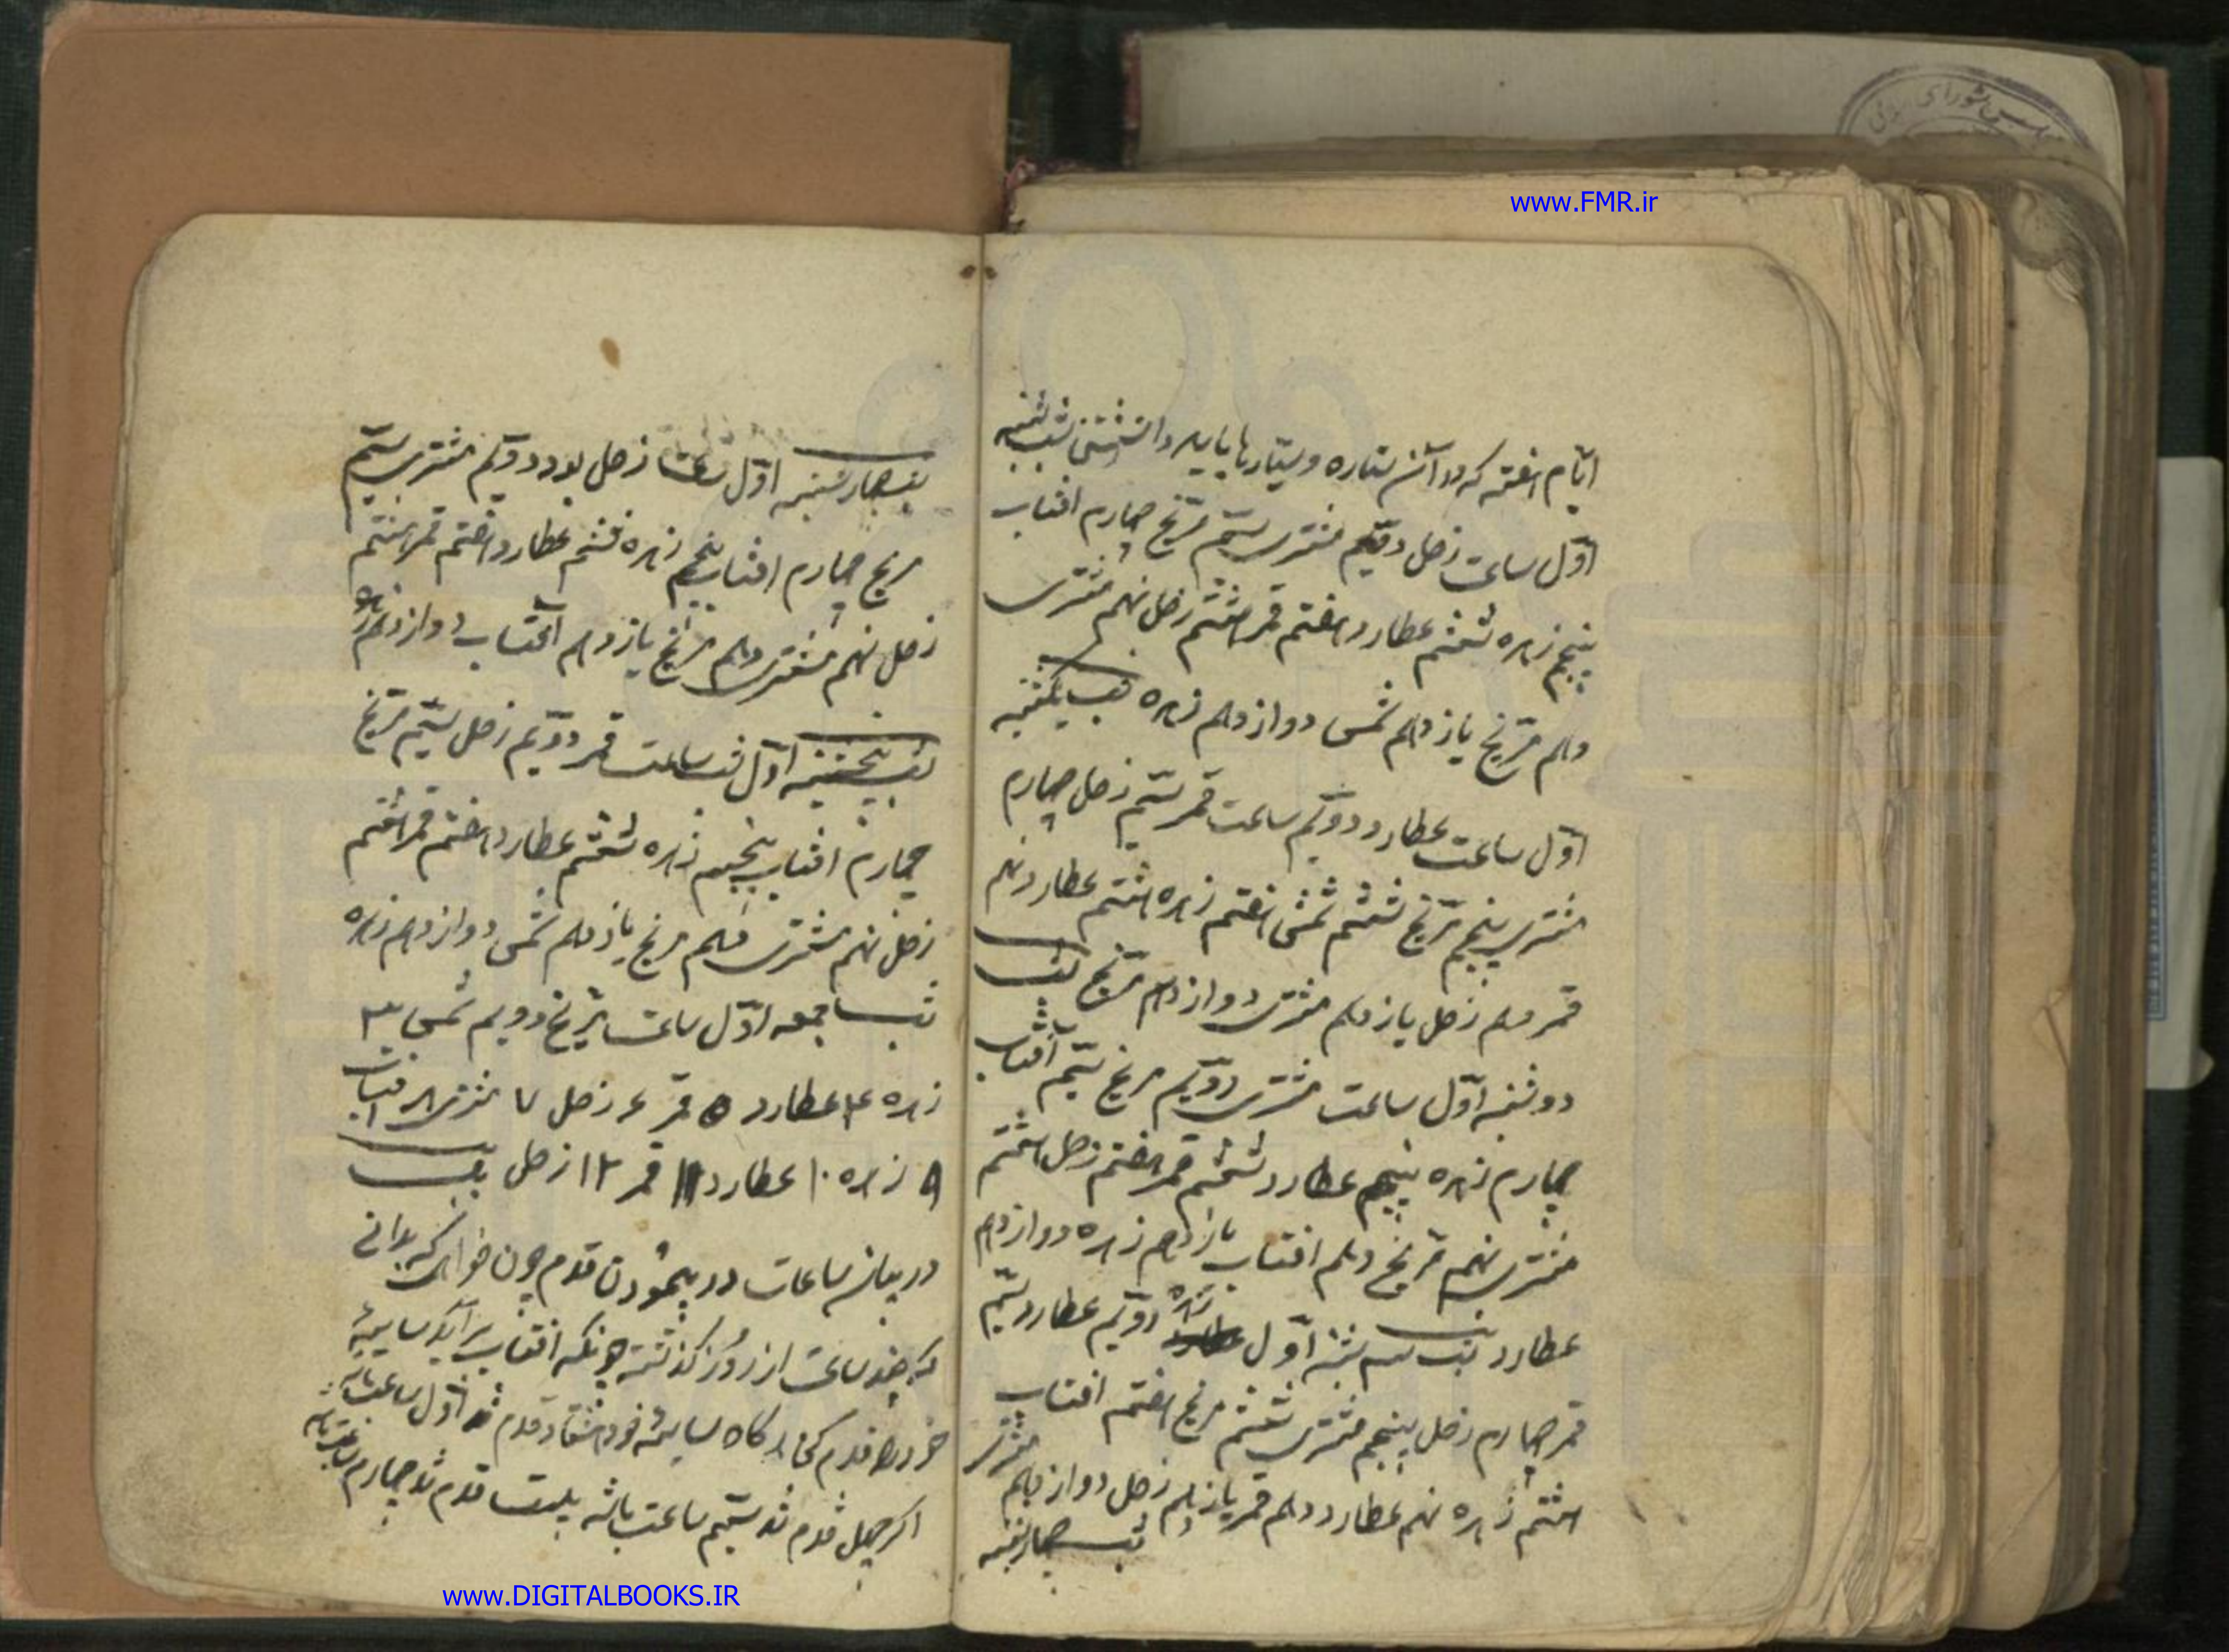 www.FMR.ir
ایام هفته که در آن ستاره و ستارها باید دانستن شب شنبه
اول ساعت زحل دویم مشتری سیم مریخ چهارم افتاب
پنجم زهره ششم عطارد هفتم قمر هشتم زحل نهم مشتری
دهم مریخ یازدهم شمس دوازدهم زهره شب یکشنبه
اول ساعت عطارد دویم ساعت قمر سیم زحل چهارم
مشتری پنجم مریخ ششم شمس هفتم زهره هشتم عطارد نهم
قمر دهم زحل یازدهم مشتری دوازدهم مریخ شب
دوشنبه اول ساعت مشتری دویم مریخ سیم آفتاب
چهارم زهره پنجم عطارد ششم قمر هفتم زحل هشتم
مشتری نهم مریخ دهم افتاب یازدهم زهره دوازدهم
عطارد شب سه شنبه اول زهره دویم عطارد سیم
قمر چهارم زحل پنجم مشتری ششم مریخ هفتم افتاب
هشتم زهره نهم عطارد دهم قمر یازدهم زحل دوازدهم مشتری
شب چهارشنبه
شب چهارشنبه اول ساعت زحل بود دویم مشتری سیم
مریخ چهارم افتاب پنجم زهره ششم عطارد هفتم قمر هشتم
زحل نهم مشتری دهم مریخ یازدهم آفتاب دوازدهم زهره
شب پنجشنبه اول شب ساعت قمر دویم زحل سیم مریخ
چهارم افتاب پنجم زهره ششم عطارد هفتم قمر هشتم
زحل نهم مشتری دهم مریخ یازدهم شمس دوازدهم زهره
شب جمعه اول ساعت مریخ دویم شمس ۳
زهره ۴ عطارد ۵ قمر ۶ زحل ۷ مشتری ۸ افتاب
۹ زهره ۱۰ عطارد ۱۱ قمر ۱۲ زحل
در بیان ساعات در پیمودن قدم چون خواهی که بدانی
که چند ساعت از روز کذشته چونکه افتاب برآید سایهٔ
خود را قدم کن هرکاه سایه خود هشتاد قدم شد اول ساعت باشد
اکر چهل قدم شد سیم ساعت باشد بیست قدم شد چهارم ساعت باشد
www.DIGITALBOOKS.IR